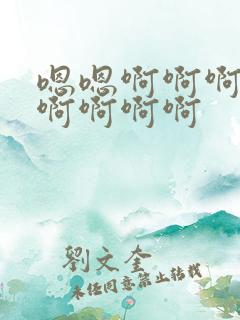 嗯嗯啊啊啊
啊啊啊啊
劉文奎
未经同意禁止转载